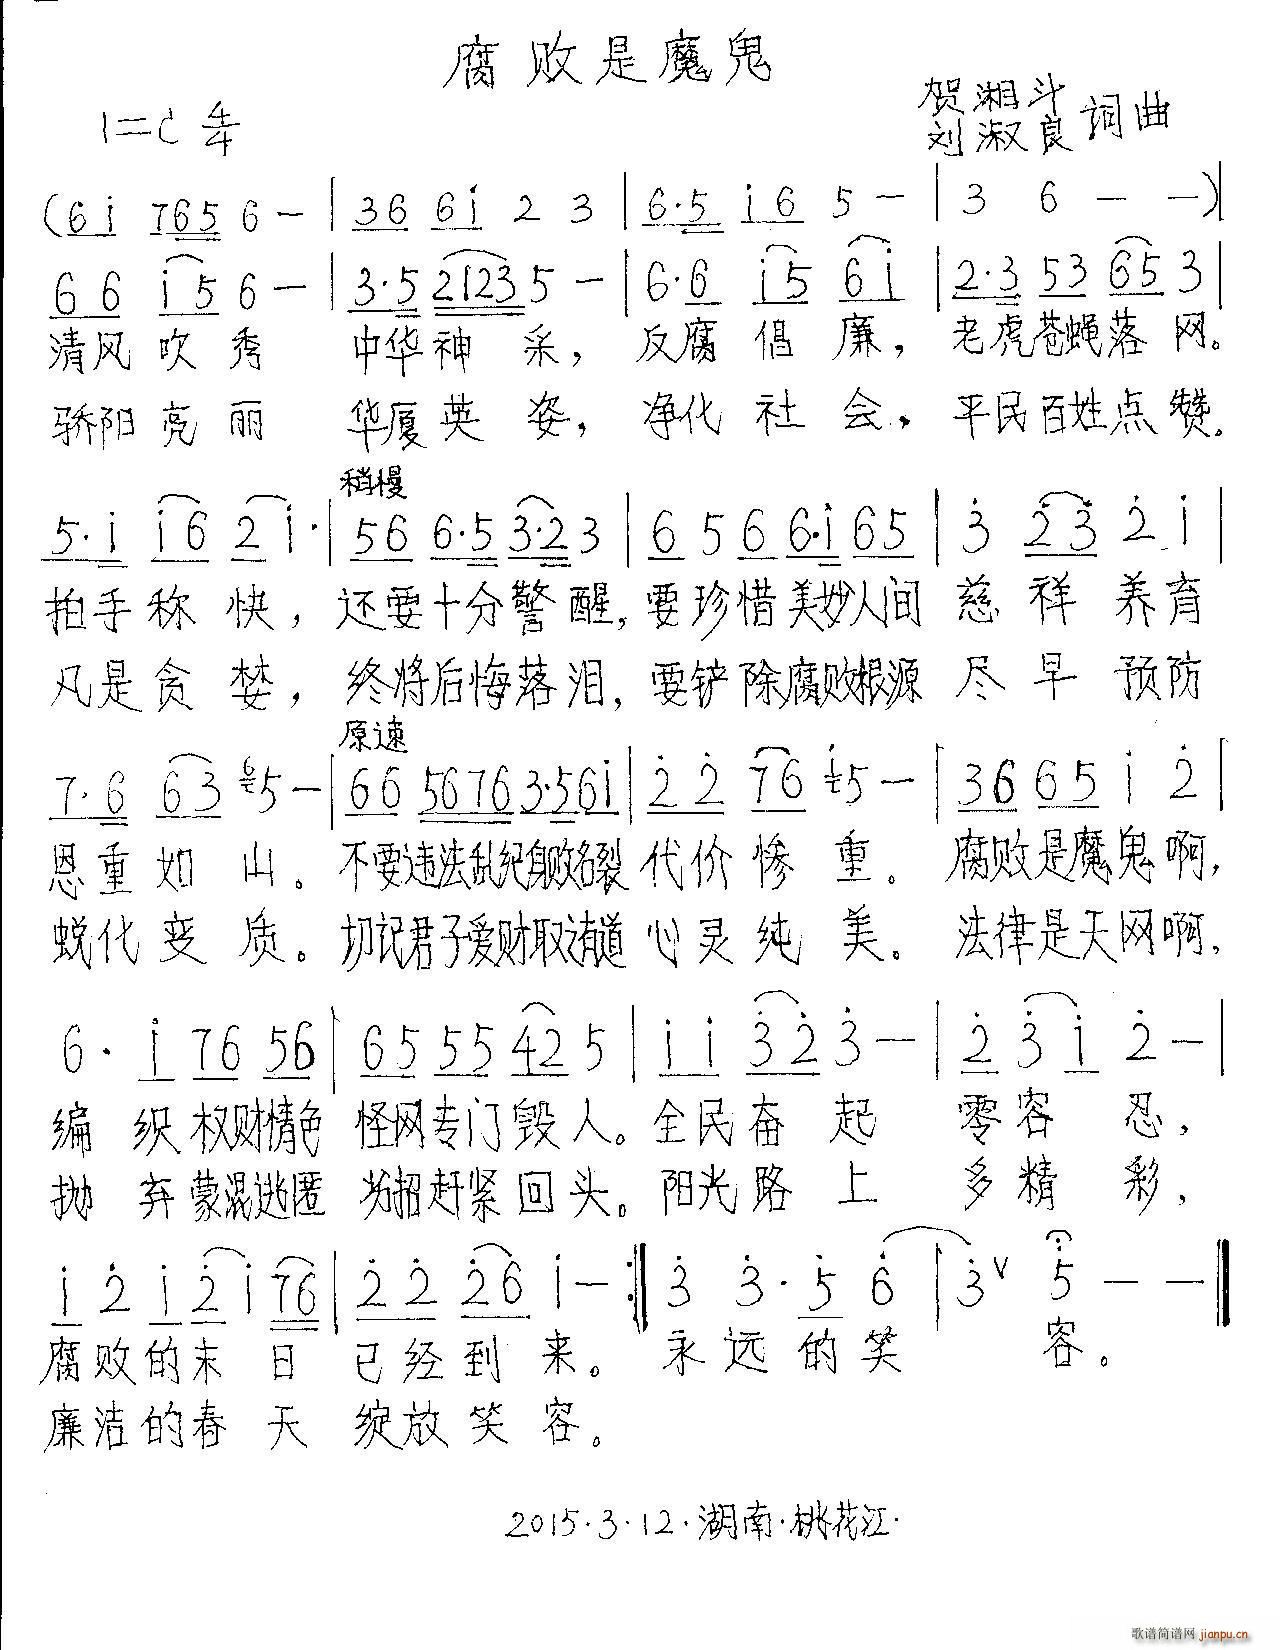 腐败是魔鬼
1=C 4/4
贺湘斗
刘淑良 词曲
(6i 765 6- | 36 6i 2 3 | 6·5 i6 5- | 3 6 - -)|
66 i5 6- | 3·5 2123 5- | 6·6 i5 6i | 2·3 53 65 3 |
清风吹秀 中华神采，反腐倡廉，老虎苍蝇落网。
骄阳亮丽 华厦英姿，净化社会，平民百姓点赞。
稍慢
5·i i6 2i· | 56 6·5 3·2 3 | 6 5 6 6·i 65 | 3 23 2 i |
拍手称快，还要十分警醒，要珍惜美妙人间 慈祥养育
凡是贪婪，终将后悔落泪，要铲除腐败根源 尽早预防
原速
7·6 63 5- | 66 5676 3·56i | 2 2 76 5- | 36 65 i 2 |
恩重如山。不要违法乱纪身败名裂 代价惨重。腐败是魔鬼啊，
蜕化变质。切记君子爱财取之有道 心灵纯美。法律是天网啊，
6· i 76 56 | 65 55 42 5 | i i 32 3- | 2 3 i 2- |
编织权财情色 怪网专门毁人。全民奋起 零容忍，
抛弃蒙混逃匿 劣招赶紧回头。阳光路上 多精彩，
i 2 i 2 i 76 | 2 2 26 i- :‖ 3 3· 5 6 | 3 ∨ 5 - - ‖
腐败的末日 已经到来。永远的笑 容。
廉洁的春天 绽放笑容。
2015·3·12·湖南·桃花江·
歌谱简谱网 jianpu.cn